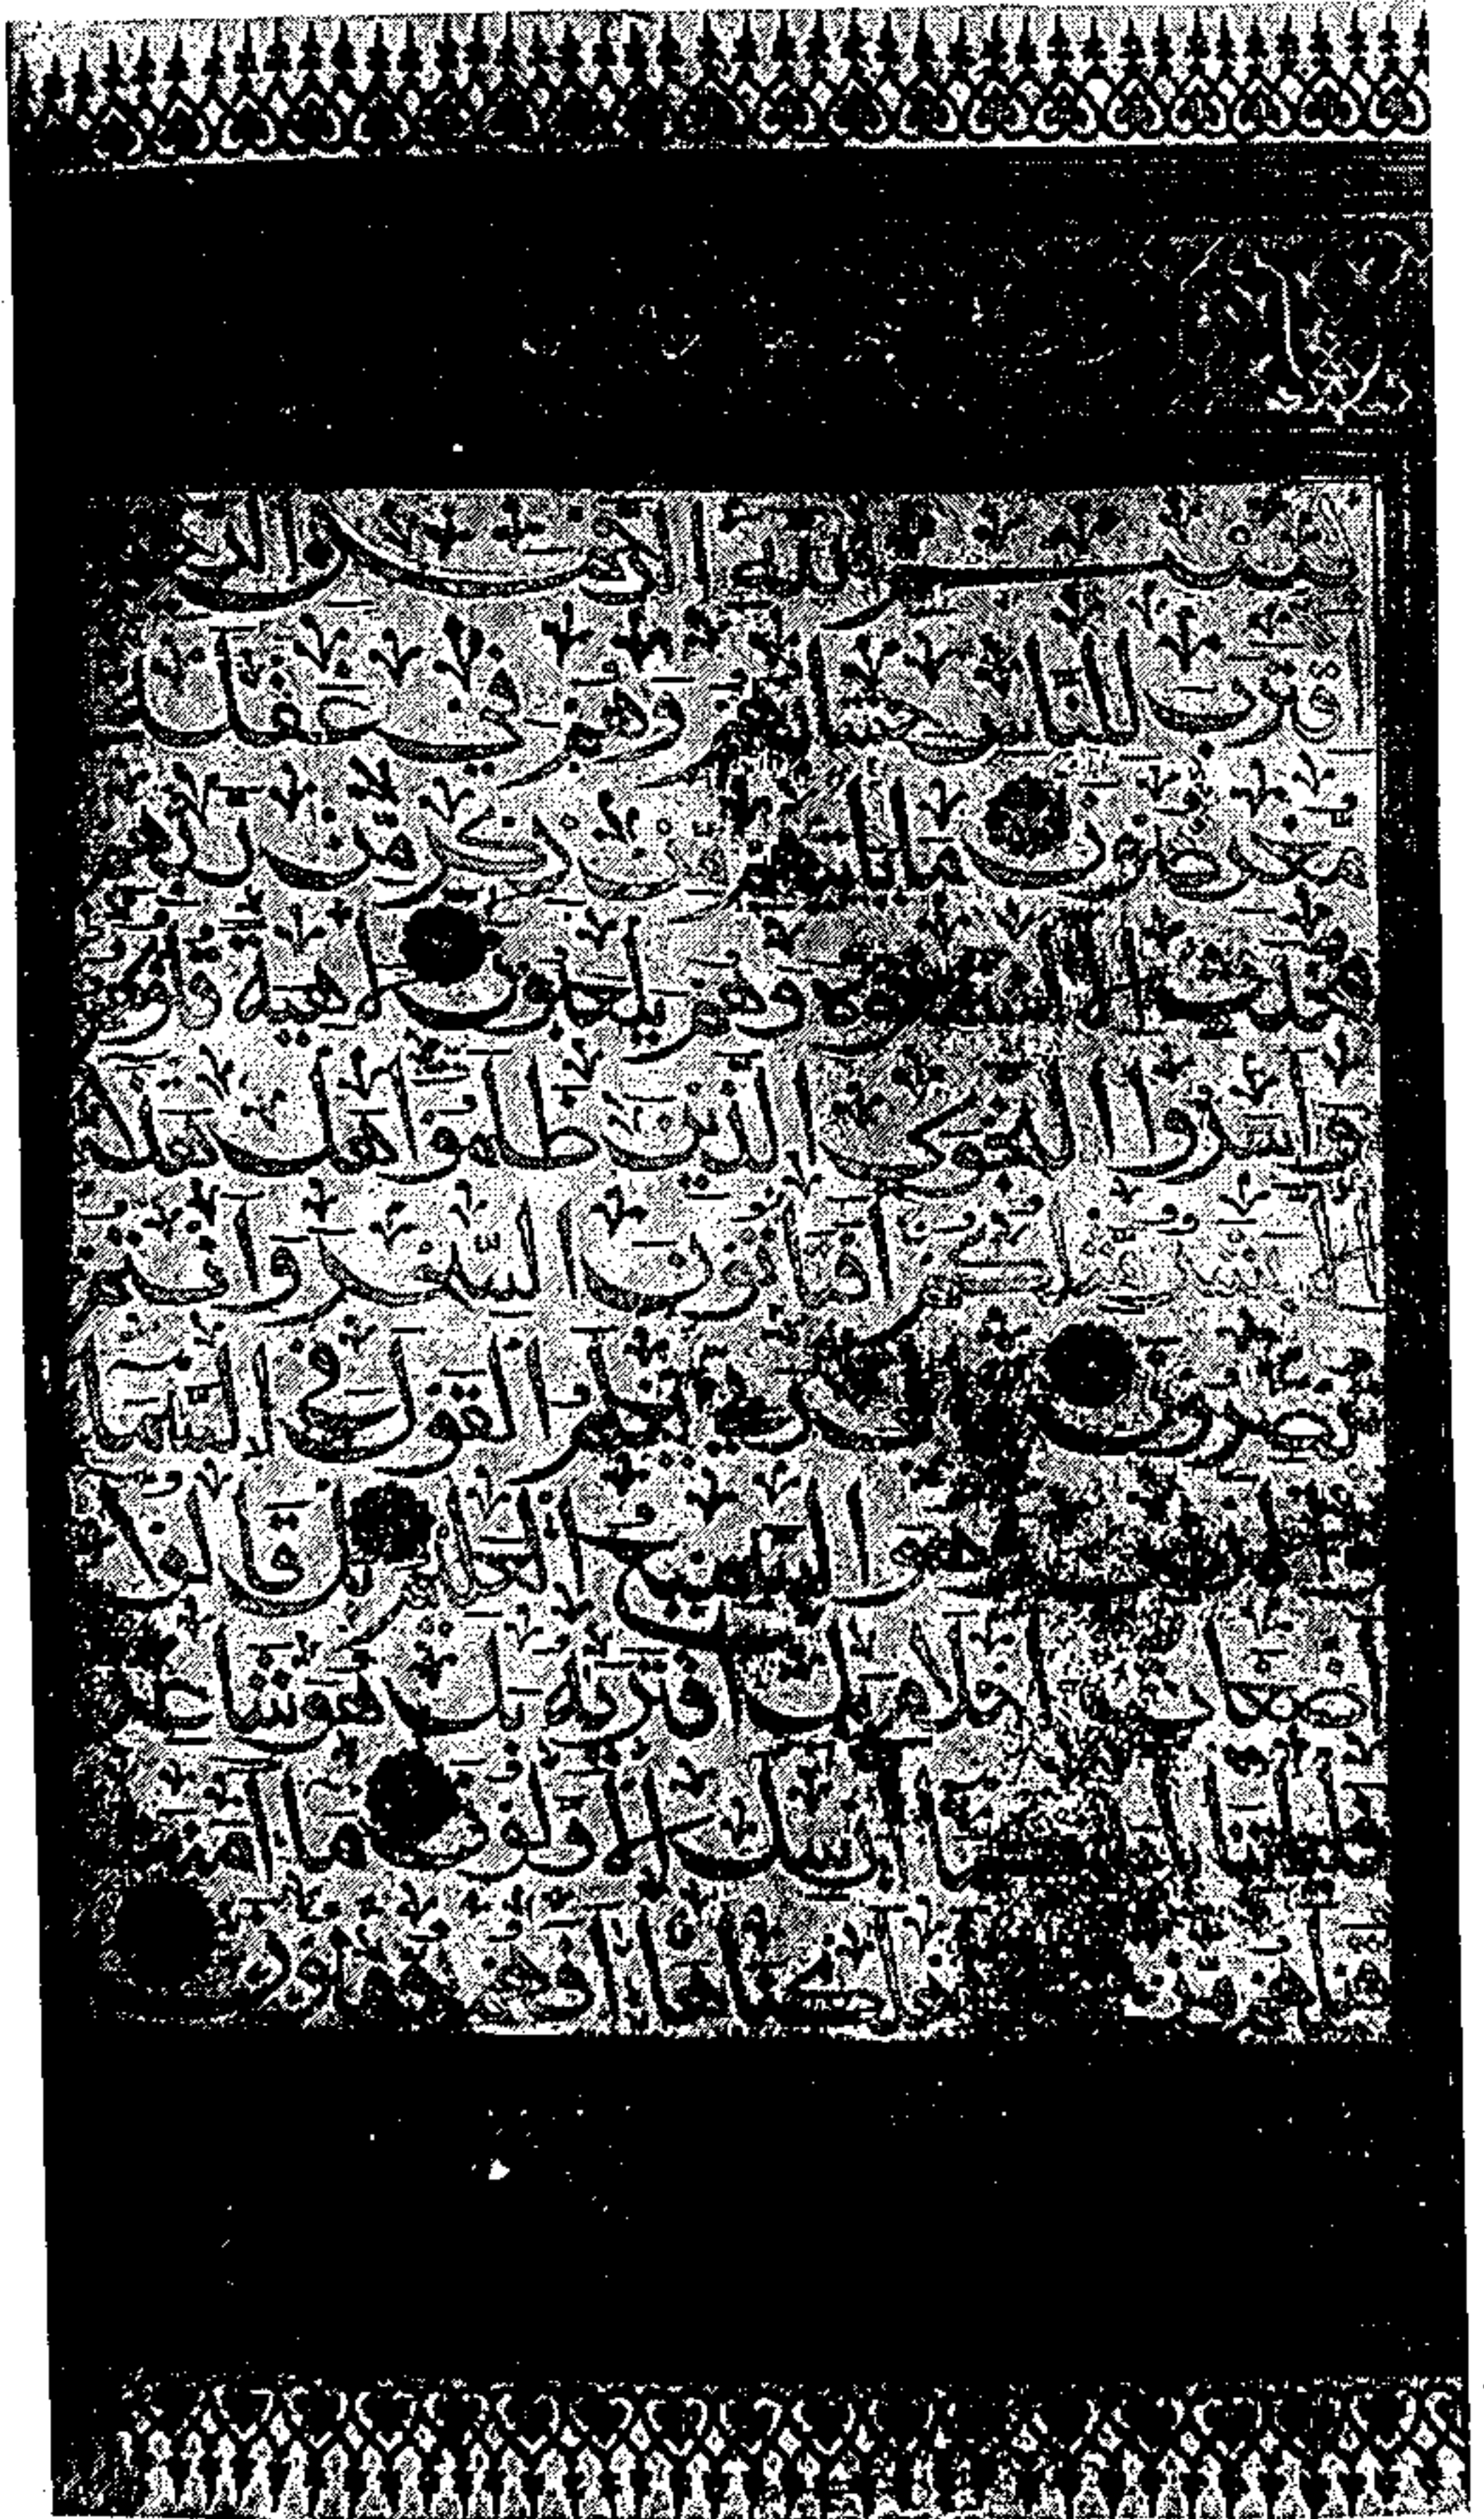 بسم الله الرحمن الرحيم
اقترب للناس حسابهم وهم في غفلة
معرضون ما يأتيهم من ذكر من ربهم
محدث إلا استمعوه وهم يلعبون لاهية قلوبهم
وأسروا النجوى الذين ظلموا هل هذا إلا
بشر مثلكم أفتأتون السحر وأنتم
تبصرون قال ربي يعلم القول في السماء
والأرض وهو السميع العليم بل قالوا
أضغاث أحلام بل افتريه بل هو شاعر
فليأتنا بآية كما أرسل الأولون ما آمنت
قبلهم من قرية أهلكناها أفهم يؤمنون